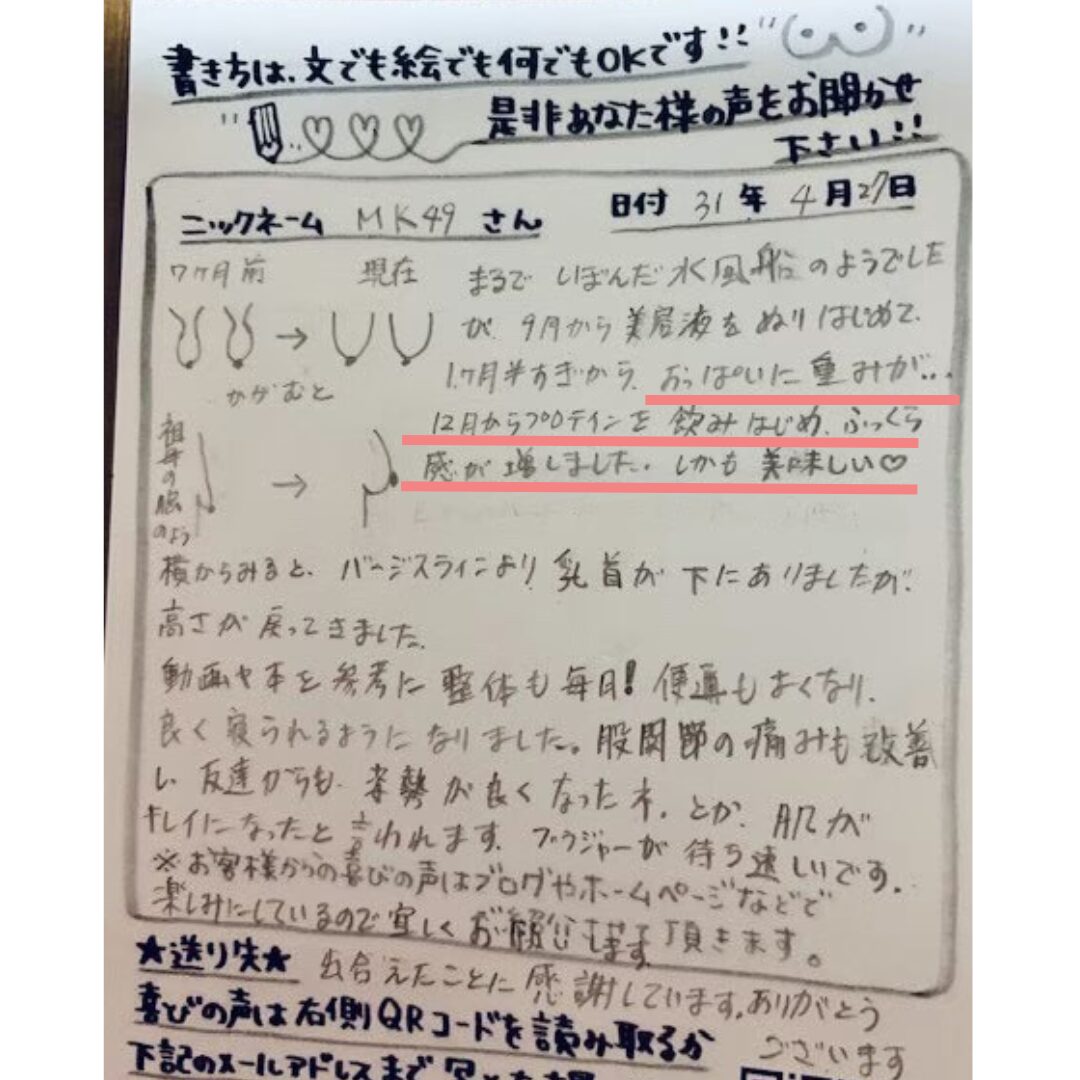 書きちは、文でも絵でも何でもOKです!!
是非あなた様の声をお聞かせ
下さい!!
ニックネーム MK49 さん 日付 31年4月27日
7ヶ月前 現在
まるで しぼんだ水風船のようでした
が、9月から美容液をぬりはじめて、
1ヶ月半すぎから、おっぱいに重みが...
12月からプロテインを飲みはじめ、ふっくら
感が増しました。しかも美味しい♡
かがむと
祖母の胸のよう
横からみると、バージスラインより乳首が下にありましたが、
高さが戻ってきました。
動画や本を参考に整体も毎日!便通もよくなり、
良く寝られるようになりました。股関節の痛みも改善
し 友達からも、姿勢が良くなったネ、とか、肌が
キレイになったと言われます。ブラジャーが待ち遠しいです。
※お客様からの喜びの声はブログやホームページなどで
楽しみにしているので宜しくお願いします 頂きます。
★送り先★ 出会えたことに感謝しています。ありがとう
ございます
喜びの声は右側QRコードを読み取るか
下記のメールアドレスまで